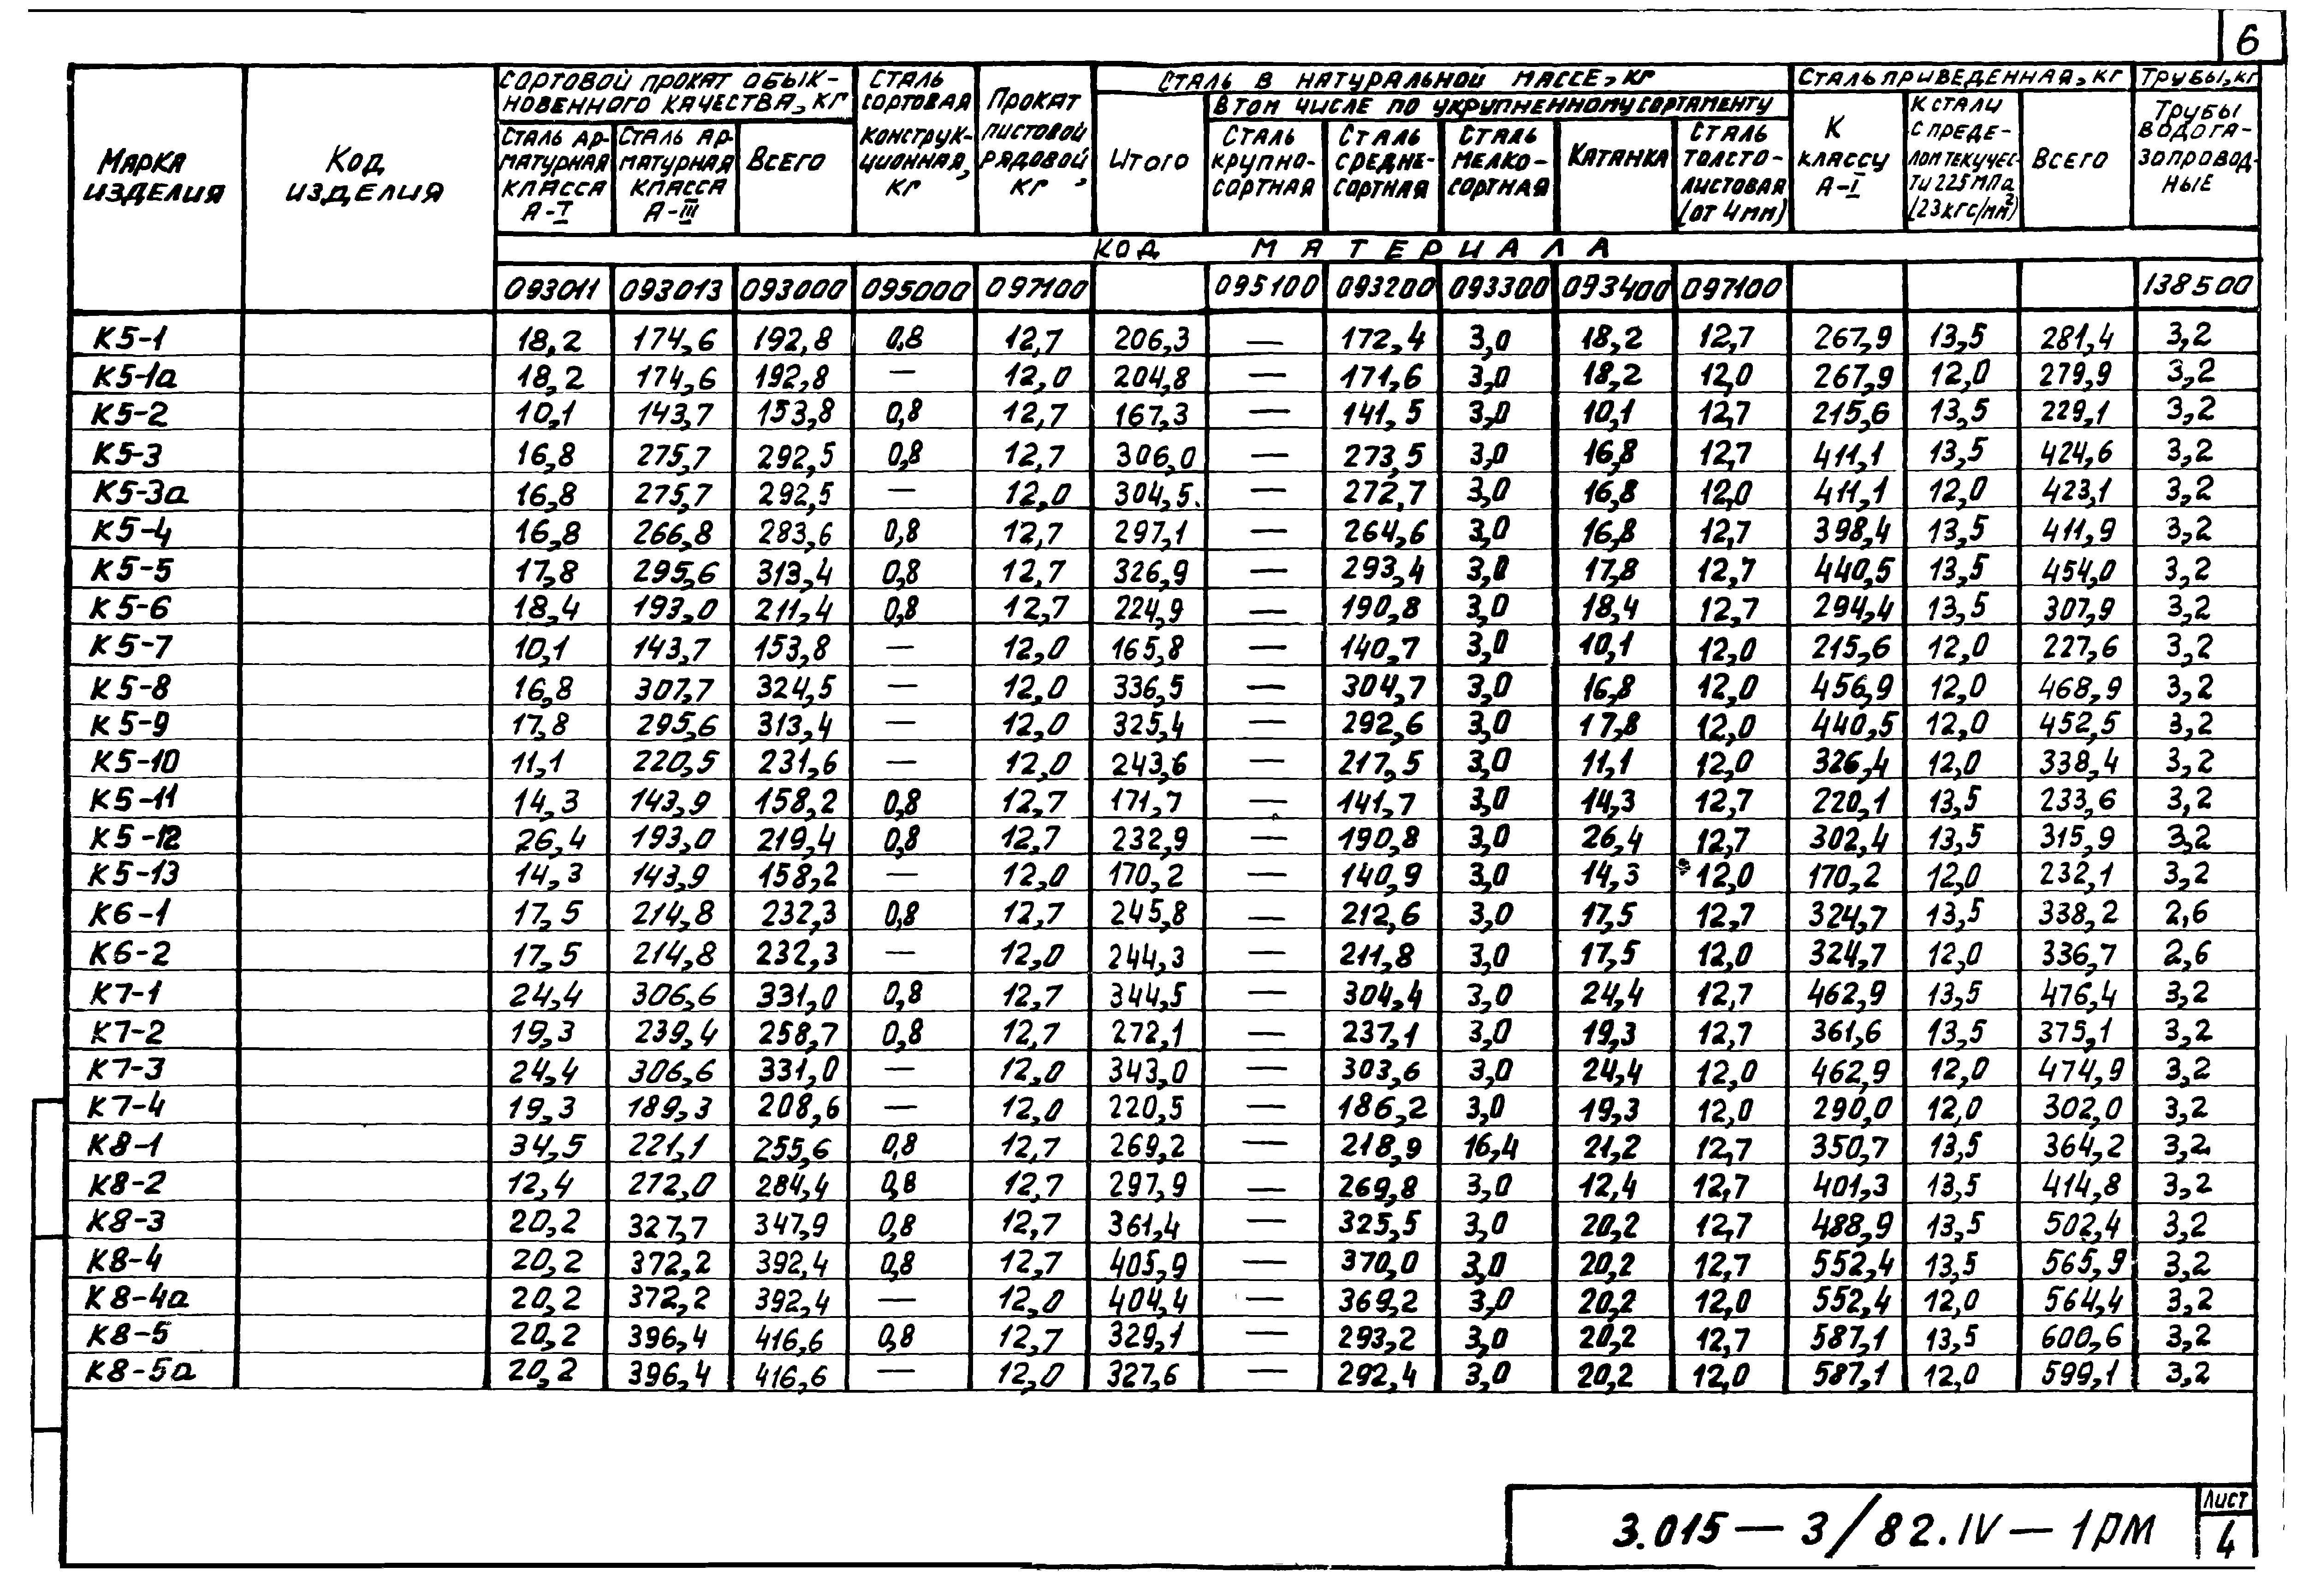 6
Марка изделия
Код изделия
Сортовой прокат обыкновенного качества, кг
Сталь сортовая конструкционная, кг
Прокат листовой рядовой, кг
Сталь в натуральной массе, кг
Сталь приведенная, кг
Трубы, кг
Сталь арматурная класса А-I
Сталь арматурная класса А-III
Всего
Итого
В том числе по укрупненному сортаменту
Сталь крупносортная
Сталь среднесортная
Сталь мелкосортная
Катанка
Сталь толстолистовая (от 4 мм)
К классу А-I
К стали с пределом текучести 225 МПа (23 кгс/мм²)
Всего
Трубы водогазопроводные
Код материала
093011 093013 093000 095000 097100 095100 093200 093300 093400 097100 138500
К5-1 18,2 174,6 192,8 0,8 12,7 206,3 — 172,4 3,0 18,2 12,7 267,9 13,5 281,4 3,2
К5-1а 18,2 174,6 192,8 — 12,0 204,8 — 171,6 3,0 18,2 12,0 267,9 12,0 279,9 3,2
К5-2 10,1 143,7 153,8 0,8 12,7 167,3 — 141,5 3,0 10,1 12,7 215,6 13,5 229,1 3,2
К5-3 16,8 275,7 292,5 0,8 12,7 306,0 — 273,5 3,0 16,8 12,7 411,1 13,5 424,6 3,2
К5-3а 16,8 275,7 292,5 — 12,0 304,5 — 272,7 3,0 16,8 12,0 411,1 12,0 423,1 3,2
К5-4 16,8 266,8 283,6 0,8 12,7 297,1 — 264,6 3,0 16,8 12,7 398,4 13,5 411,9 3,2
К5-5 17,8 295,6 313,4 0,8 12,7 326,9 — 293,4 3,0 17,8 12,7 440,5 13,5 454,0 3,2
К5-6 18,4 193,0 211,4 0,8 12,7 224,9 — 190,8 3,0 18,4 12,7 294,4 13,5 307,9 3,2
К5-7 10,1 143,7 153,8 — 12,0 165,8 — 140,7 3,0 10,1 12,0 215,6 12,0 227,6 3,2
К5-8 16,8 307,7 324,5 — 12,0 336,5 — 304,7 3,0 16,8 12,0 456,9 12,0 468,9 3,2
К5-9 17,8 295,6 313,4 — 12,0 325,4 — 292,6 3,0 17,8 12,0 440,5 12,0 452,5 3,2
К5-10 11,1 220,5 231,6 — 12,0 243,6 — 217,5 3,0 11,1 12,0 326,4 12,0 338,4 3,2
К5-11 14,3 143,9 158,2 0,8 12,7 171,7 — 141,7 3,0 14,3 12,7 220,1 13,5 233,6 3,2
К5-12 26,4 193,0 219,4 0,8 12,7 232,9 — 190,8 3,0 26,4 12,7 302,4 13,5 315,9 3,2
К5-13 14,3 143,9 158,2 — 12,0 170,2 — 140,9 3,0 14,3 12,0 170,2 12,0 232,1 3,2
К6-1 17,5 214,8 232,3 0,8 12,7 245,8 — 212,6 3,0 17,5 12,7 324,7 13,5 338,2 2,6
К6-2 17,5 214,8 232,3 — 12,0 244,3 — 211,8 3,0 17,5 12,0 324,7 12,0 336,7 2,6
К7-1 24,4 306,6 331,0 0,8 12,7 344,5 — 304,4 3,0 24,4 12,7 462,9 13,5 476,4 3,2
К7-2 19,3 239,4 258,7 0,8 12,7 272,1 — 237,1 3,0 19,3 12,7 361,6 13,5 375,1 3,2
К7-3 24,4 306,6 331,0 — 12,0 343,0 — 303,6 3,0 24,4 12,0 462,9 12,0 474,9 3,2
К7-4 19,3 189,3 208,6 — 12,0 220,5 — 186,2 3,0 19,3 12,0 290,0 12,0 302,0 3,2
К8-1 34,5 221,1 255,6 0,8 12,7 269,2 — 218,9 16,4 21,2 12,7 350,7 13,5 364,2 3,2
К8-2 12,4 272,0 284,4 0,8 12,7 297,9 — 269,8 3,0 12,4 12,7 401,3 13,5 414,8 3,2
К8-3 20,2 327,7 347,9 0,8 12,7 361,4 — 325,5 3,0 20,2 12,7 488,9 13,5 502,4 3,2
К8-4 20,2 372,2 392,4 0,8 12,7 405,9 — 370,0 3,0 20,2 12,7 552,4 13,5 565,9 3,2
К8-4а 20,2 372,2 392,4 — 12,0 404,4 — 369,2 3,0 20,2 12,0 552,4 12,0 564,4 3,2
К8-5 20,2 396,4 416,6 0,8 12,7 329,1 — 293,2 3,0 20,2 12,7 587,1 13,5 600,6 3,2
К8-5а 20,2 396,4 416,6 — 12,0 327,6 — 292,4 3,0 20,2 12,0 587,1 12,0 599,1 3,2
3.015—3/82.IV—1РМ
Лист
4